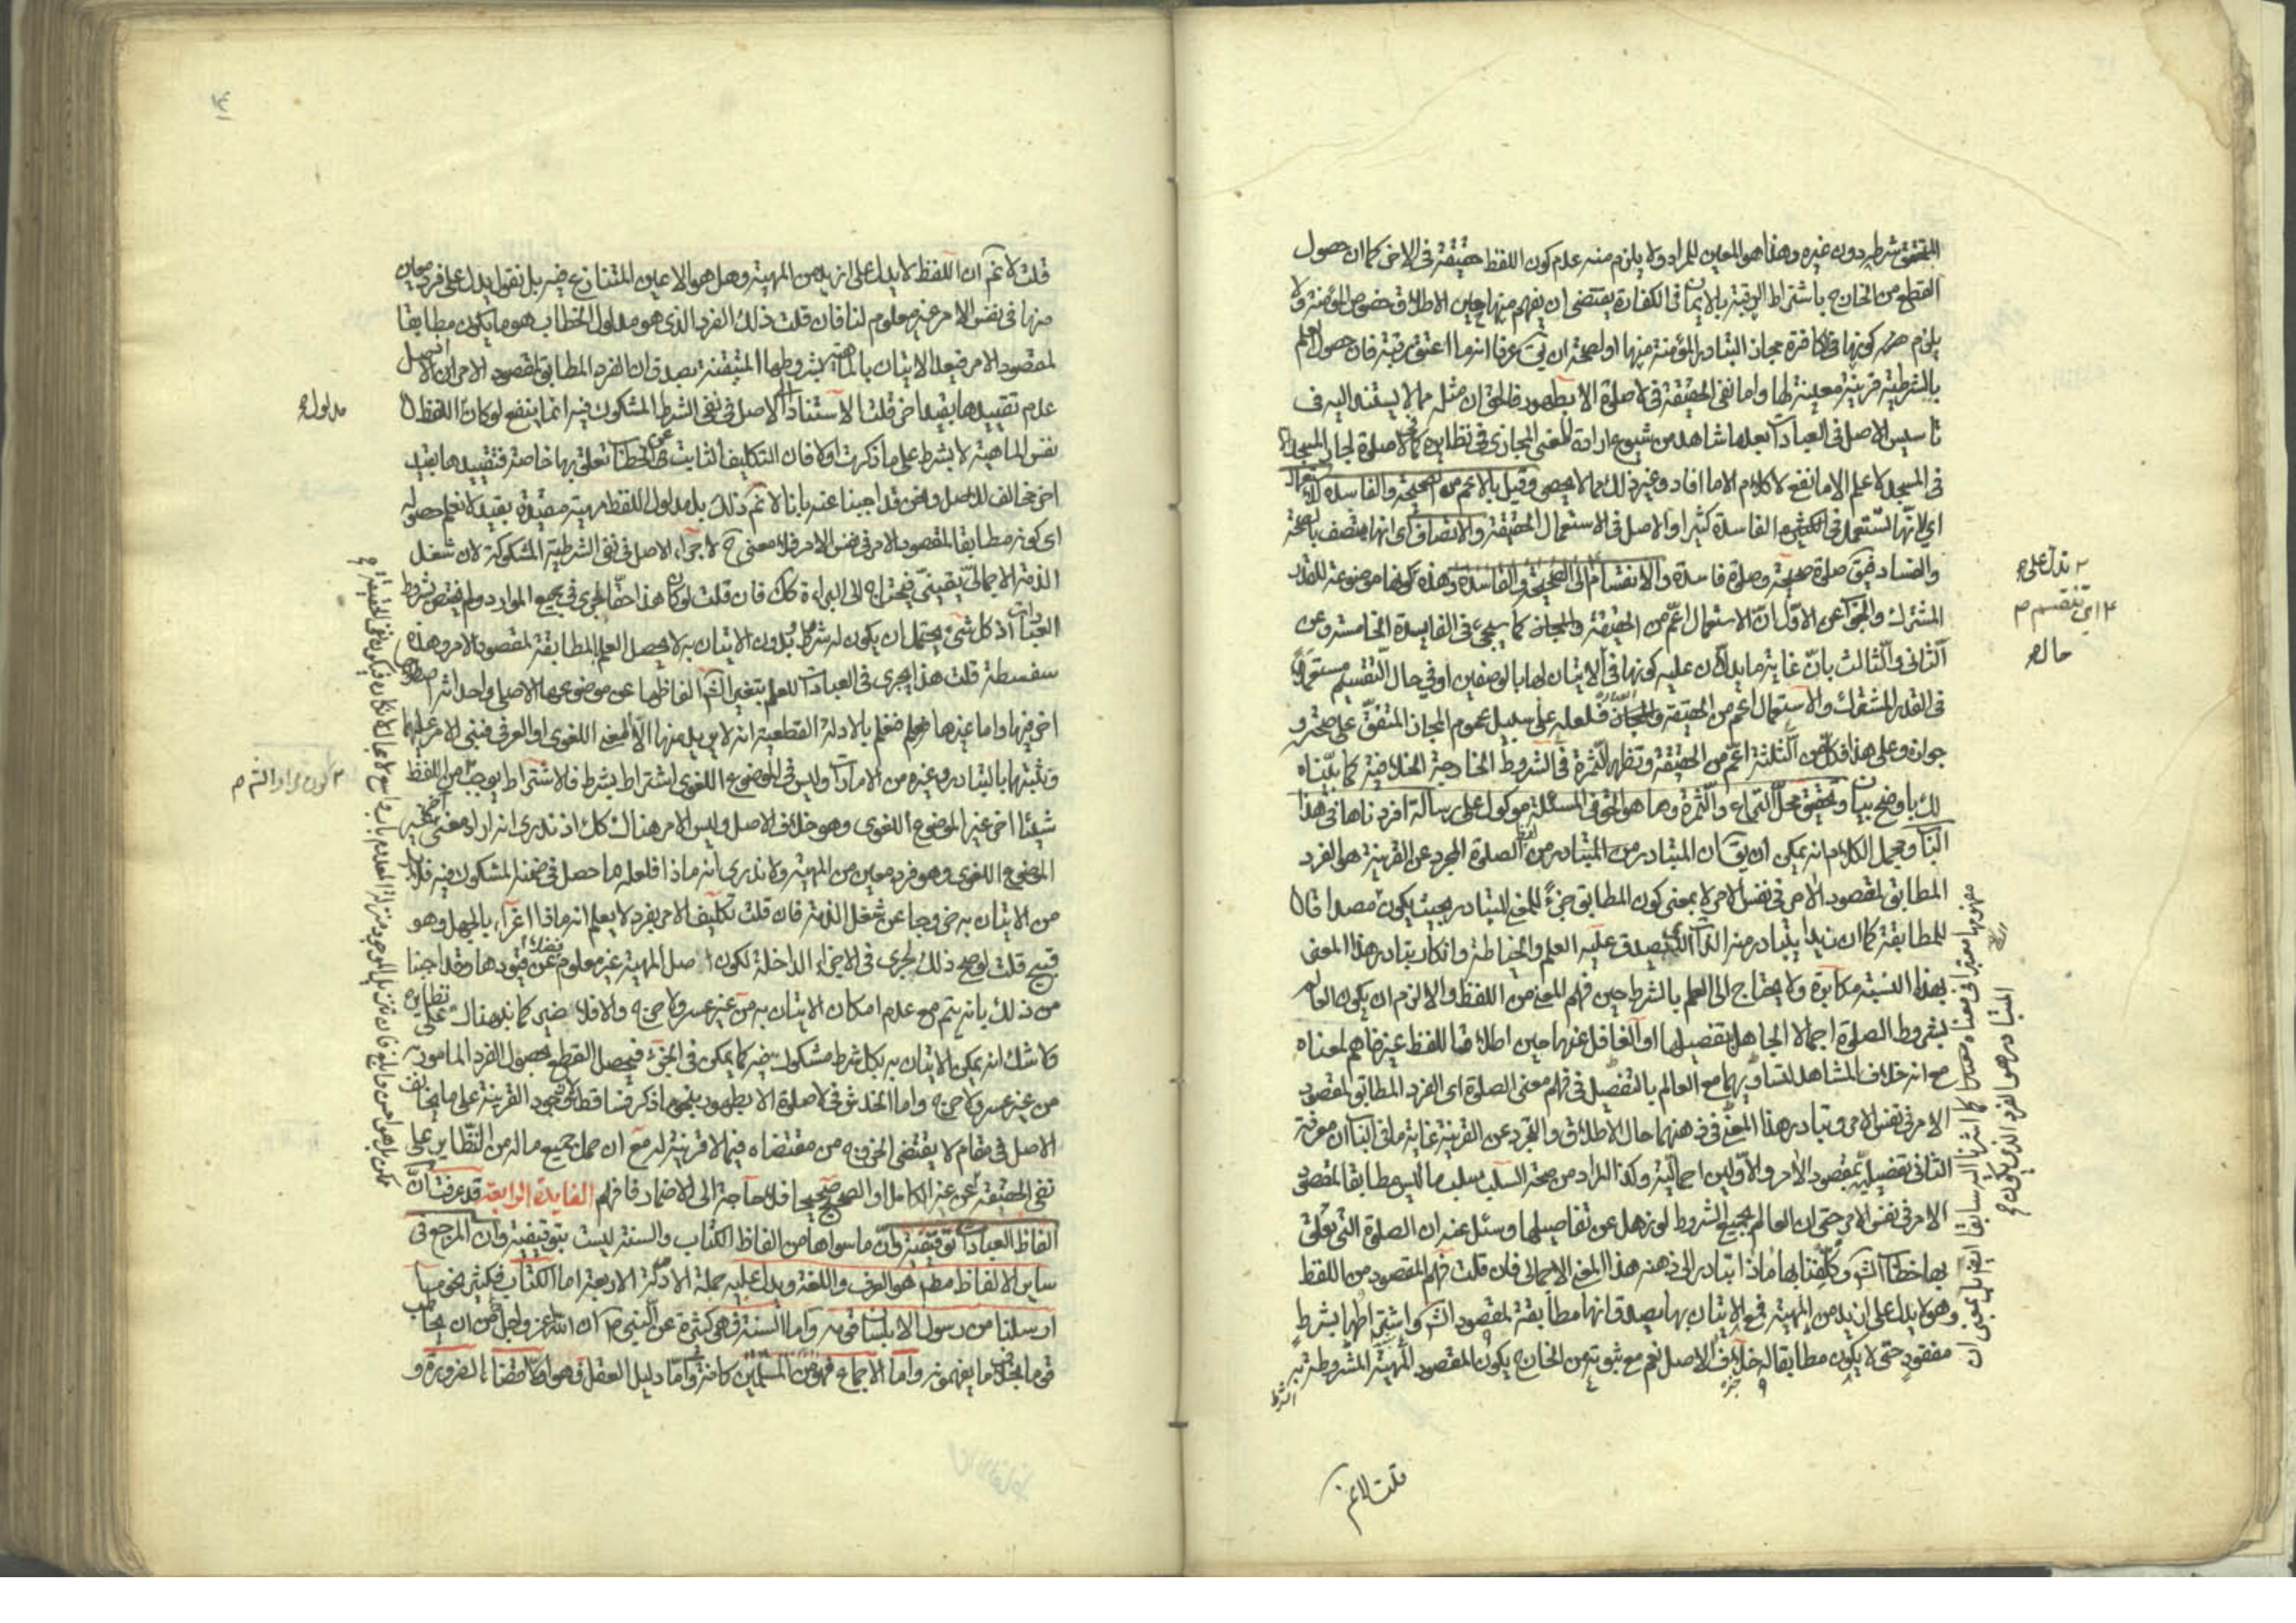 المتحقق شرطه دون غيره وهذا هو المعين للمراد ولا يلزم منه عدم كون اللفظ حقيقة في الاخر كما ان حصول
القطع من الخارج باشتراط الرقبة بالايمان في الكفارة يقتضى ان يفهم منها حين الاطلاق خصوص المؤمنة ولا
يلزم منه كونها في الكافرة مجاز التبادر المؤمنة منها او لصحة ان يق عرفا انه ما اعتق رقبة فان حصول العلم
بالشرطية قرينة معينة لها واما نفى الحقيقة في لا صلوة الا بطهور فالحق ان مثله مما لا يستند اليه في
تاسيس الاصل في العبادات بعد ما شاهد من شيوع ارادة المعنى المجازى في نظايره كما في لا صلوة لجار المسجد الا
في المسجد لا علم الا ما نفع لا كلام الا ما افاد وغير ذلك مما لا يحصى وقيل بالاعم من الصحيحة والفاسدة للاستعمال
اى لانها تستعمل في الفاسدة كثيرا والاصل في الاستعمال الحقيقة والاتصاف اى انها يتصف بالصحة
والفساد فيق صلوة صحيحة وصلوة فاسدة والانقسام الى الصحيحة والفاسدة وهذه كونها موضوعة للقدر
المشترك والجواب عن الاول ان الاستعمال اعم من الحقيقة والمجاز كما سيجيء في الفايدة الخامسة وعن
الثانى والثالث بان غاية ما يدلان عليه كونها في الاتيان لها بالوصفين او في حال التقسيم مستعملة
في القدر المشترك والاستعمال اعم من الحقيقة فلعله على سبيل عموم المجاز المتفق على صحته و
جوازه وعلى هذا فكل من الثلثة اعم من الحقيقة وتظهر الثمرة في الشروط الخارجة الخلافية كما بيناه
لك باوضح بيان وتحقيق محل النزاع والثمرة وما هو الحق في المسئلة موكول على رسالة افردناها في هذا
الباب ومجمل الكلام انه يمكن ان يق ان المتبادر من لفظ الصلوة المجرد عن القرينة هو الفرد
المطابق لمقصود الامر في نفس الامر لا بمعنى كون المطابق جزءً للمعنى المتبادر بحيث يكون مصداقا
للمطابقة كما ان زيدا يتبادر منه الذات الذى يصدق عليه العلم والخياطة وانكار تبادر هذا المعنى
بهذا النسبة مكابرة ولا يحتاج الى العلم بالشرط حين فهم المعنى من اللفظ والا لزم ان يكون العالم
بشروط الصلوة اجمالا الجاهل بتفصيلها او الغافل عنها حين اطلاق اللفظ غير فاهم لمعناه
مع انه خلاف المشاهد لتساويهما مع العالم بالتفصيل في فهم معنى الصلوة اى الفرد المطابق لمقصود
الامر في نفس الامر وتبادر هذا المعنى في ذهنهما حال الاطلاق والتجرد عن القرينة غاية ما في الباب ان معرفة
الثانى تفصيلية بمقصود الامر والاولين اجمالية وكذا المراد من صحة السلب سلب ما ليس مطابقا لمقصود
الامر في نفس الامر حتى ان العالم بجميع الشروط لو ذهل عن تفاصيلها وسئل عنه ان الصلوة التى تعلق
بها خطاب الشرع وكلفنا بها ماذا يتبادر الى ذهنه هذا المعنى الاجمالى فان قلت فهم المقصود من اللفظ
وهو لا يدل على ازيد من المهية فمع الاتيان بها يصدق انها مطابقة لمقصود الش واشتراطها بشرط
مفقود حتى لا يكون مطابقا له خلاف الاصل نعم مع ثبوته من الخارج يكون المقصود المهية المشروطة به
تدل على
اى تنقسم
حال
قلت لا نم
قلت لا نم ان اللفظ لا يدل على ازيد من المهية وهل هو الا عين المتنازع فيه بل نقول يدل على فرد معين
منها في نفس الامر غير معلوم لنا فان قلت ذلك الفرد الذى هو مدلول الخطاب هو ما يكون مطابقا
لمقصود الامر فبعد الاتيان بالماهية بشروطها المتيقنة يصدق ان الفرد المطابق لمقصود الامر
عدم تقييدها بقيد اخر قلت الاستناد الى الاصل في نفى الشرط المشكوك فيه انما ينفع لو كان اللفظ
مدلول
نفس الماهية لا بشرط على ما ذكرت اولا فان التكليف الثابت من الخطاب تعلق بها خاصة فتقييدها بقيد
اخر مخالف للاصل ونحن قد اجبنا عنه بانا لا نم كذلك بل مدلول اللفظ مهية مقيدة بقيد لا نعلم حصوله
اى كونه مطابقا لمقصود الامر في نفس الامر فلا معنى ح لاجراء الاصل في نفى الشرطية المشكوكة لان شغل
الذمة الاجمالى يقينى فيحتاج الى البراءة كك فان قلت لو كان هذا حقا لجرى في جميع الموارد ولم يختص بشروط
العبادات اذ كل شىء يحتمل ان يكون له شرط بدون الاتيان به لا يحصل العلم بالمطابقة لمقصود الامر وهذه
سفسطة قلت هذا يجرى في العبادات للعلم بتغيير الش الفاظها عن موضوعها الاصلى واحداثه اصطلاحا
اخر فيها واما غيرها فنعلم بالادلة القطعية انه لا يريد منها الا المعنى اللغوى او العرفى فنبنى الامر عليهما
ونثبتها بالتبادر وغيره من الامارات وليس في الموضوع اللغوى اشتراط بشرط فالاشتراط يوجب من اللفظ
شيئا اخر غير الموضوع اللغوى وهو خلاف الاصل وليس الامر هناك كك اذ ندرى انه اراد معنى اخر غير
الموضوع اللغوى وهو فرد معين من المهية ولا ندرى انه ماذا فلعله ما حصل في ضمنه المشكوك فيه فلا بد
من الاتيان به خروجا عن شغل الذمة فان قلت تكليف الامر بفرد لا يعلم انه ماذا اغراء بالجهل وهو
قبيح قلت لو صح ذلك لجرى في الاجزاء الداخلة لكون اصل المهية غير معلوم فضلا عن قيودها وقد اجبنا
من ذلك بانه يتم مع عدم امكان الاتيان به من غير عسر ولا حرج والا فلا ضير كما في هناك على نظايره
ولا شك انه يمكن الاتيان به بكل شرط مشكوك فيه كما يمكن في الجزء فيحصل القطع بحصول الفرد المامور به
من غير عسر ولا حرج واما الخدش في لا صلوة الا بطهور بنحو ما ذكر فساقط لان وجود القرينة على ما يخالف
الاصل في مقام لا يقتضى الخروج من مقتضاه فيما لا قرينة له مع ان حمل جميع ماله من النظاير على
نفى الحقيقة عن غير الكامل او الصحيح صحيح فلا حاجة الى الاضمار فافهم الفايدة الرابعة قد عرفت ان
الفاظ العبادات توقيفية وان ما سواها من الفاظ الكتاب والسنة ليست بتوقيفية وان المرجع في
ساير الالفاظ مط هو العرف واللغة ويدل عليه جملة الادلة الاربعة اما الكتاب فكثير نحو ما
ارسلنا من رسول الا بلسان قومه واما السنة فهى كثيرة عن النبى ص ان الله عز وجل اجل من ان يخاطب
قوما بخلاف ما يفهمونه واما الاجماع فهو من المسلمين كافة واما دليل العقل فهو امكان اقتضاء الضرورة و